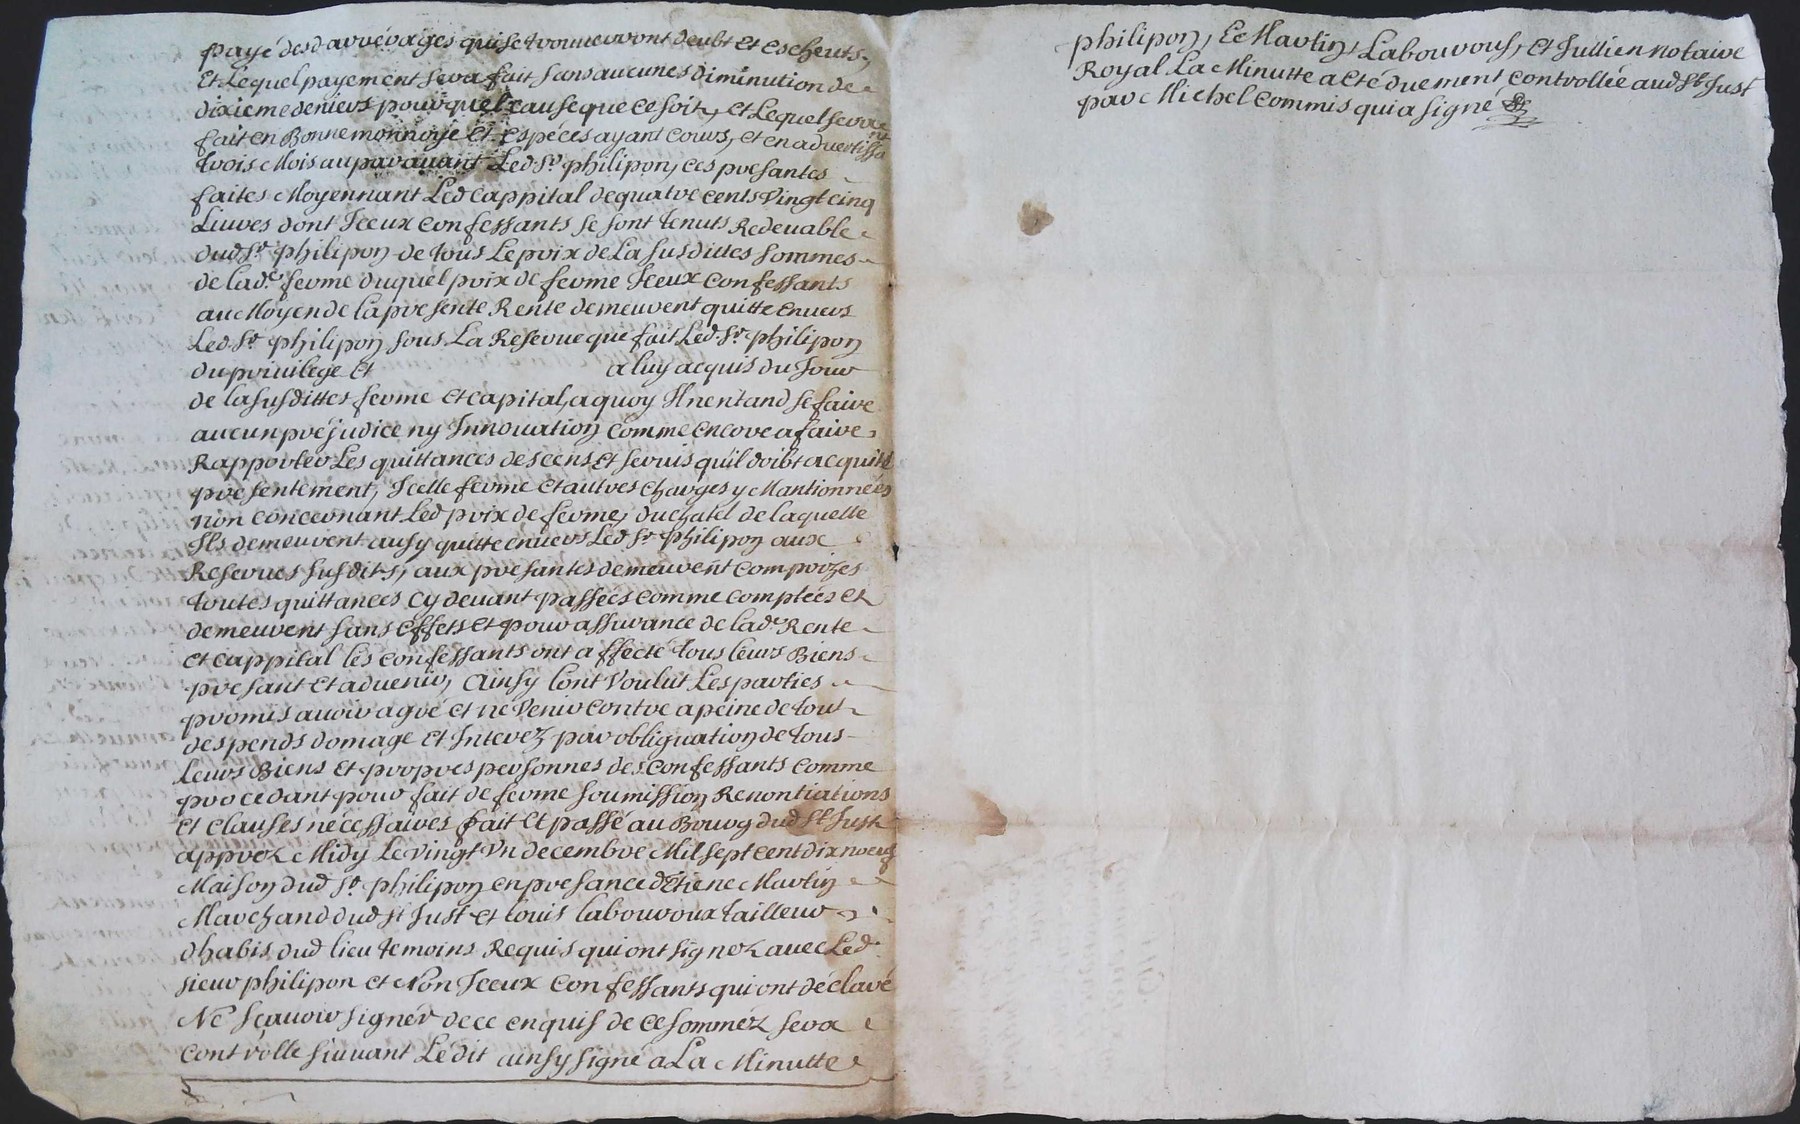 payé des d'arrérages qui se trouveront deubt et escheuts,
Et Lequel payement sera fait sans aucunes diminution de
dixieme deniers pour quel cause que ce soit, et Lequel sera
fait en Bonne monnoye et espéces ayant cours, et en advertissant
trois Mois auparavant Led. Sr. philipon, ces presantes
faites Moyennant Led cappital de quatre cents Vingt cinq
Livres dont Iceux confessants se sont tenuts Redevable
dud Sr. philipon de tous Le prix de La susdittes sommes
de lad.e ferme duquel prix de ferme Iceux confessants
au Moyen de la presente Rente demeurent quitte envers
Led. Sr. philipon sous La Reserve que fait Led. Sr. philipon
du privilege et a luy acquis du Jour
de la susdittes ferme et capital, a quoy Il nentand se faire
aucun préjudice ny Innovation comme encore a faire
Rapporter Les quittances de scens et servis quil doibt acquitté
presentement, Icelle ferme et autres charges y Mantionnées
non concernant Led prix de ferme, du chatel de laquelle
Ils demeurent ausy quitte envers Led Sr. philipon aux
Reserves susdits, aux presantes demeurent comprizes
toutes quittances cy devant passées comme comptées et
demeurent sans effets et pour assurance de lad.e Rente
et cappital les confessants ont affecté tous leurs Biens
presant et advenir, Ainsy lont Voulut Les parties
promis avoir agré et ne Venir contre a peine de tout
despends domage et Interez par obliguation de tous
Leurs Biens et propres personnes des confessants comme
procedant pour fait de ferme soumission Renontiations
et clauses nécessaires fait et passé au Bourg dud St. Just
apprez Midy Le Vingt Vn decembre Mil sept cent dix noeuf
Maison dud Sr. philipon en presance d'Etiene Martin
Marchand dud St Just et Louis Labouroux tailleur
dhabis dud lieu temoins Requis qui ont signez avec Led.
sieur philipon et Non Iceux confessants qui ont déclaré
Né sçavoir signér de ce enquis de ce sommez sera
controlle suivant Lédit ainsy signé a La Minutte
philipon, E Martin, Labourous, et Jullien notaire
Royal La Minutte a eté duement controllée aud St. Just
par Michel commis qui a signé